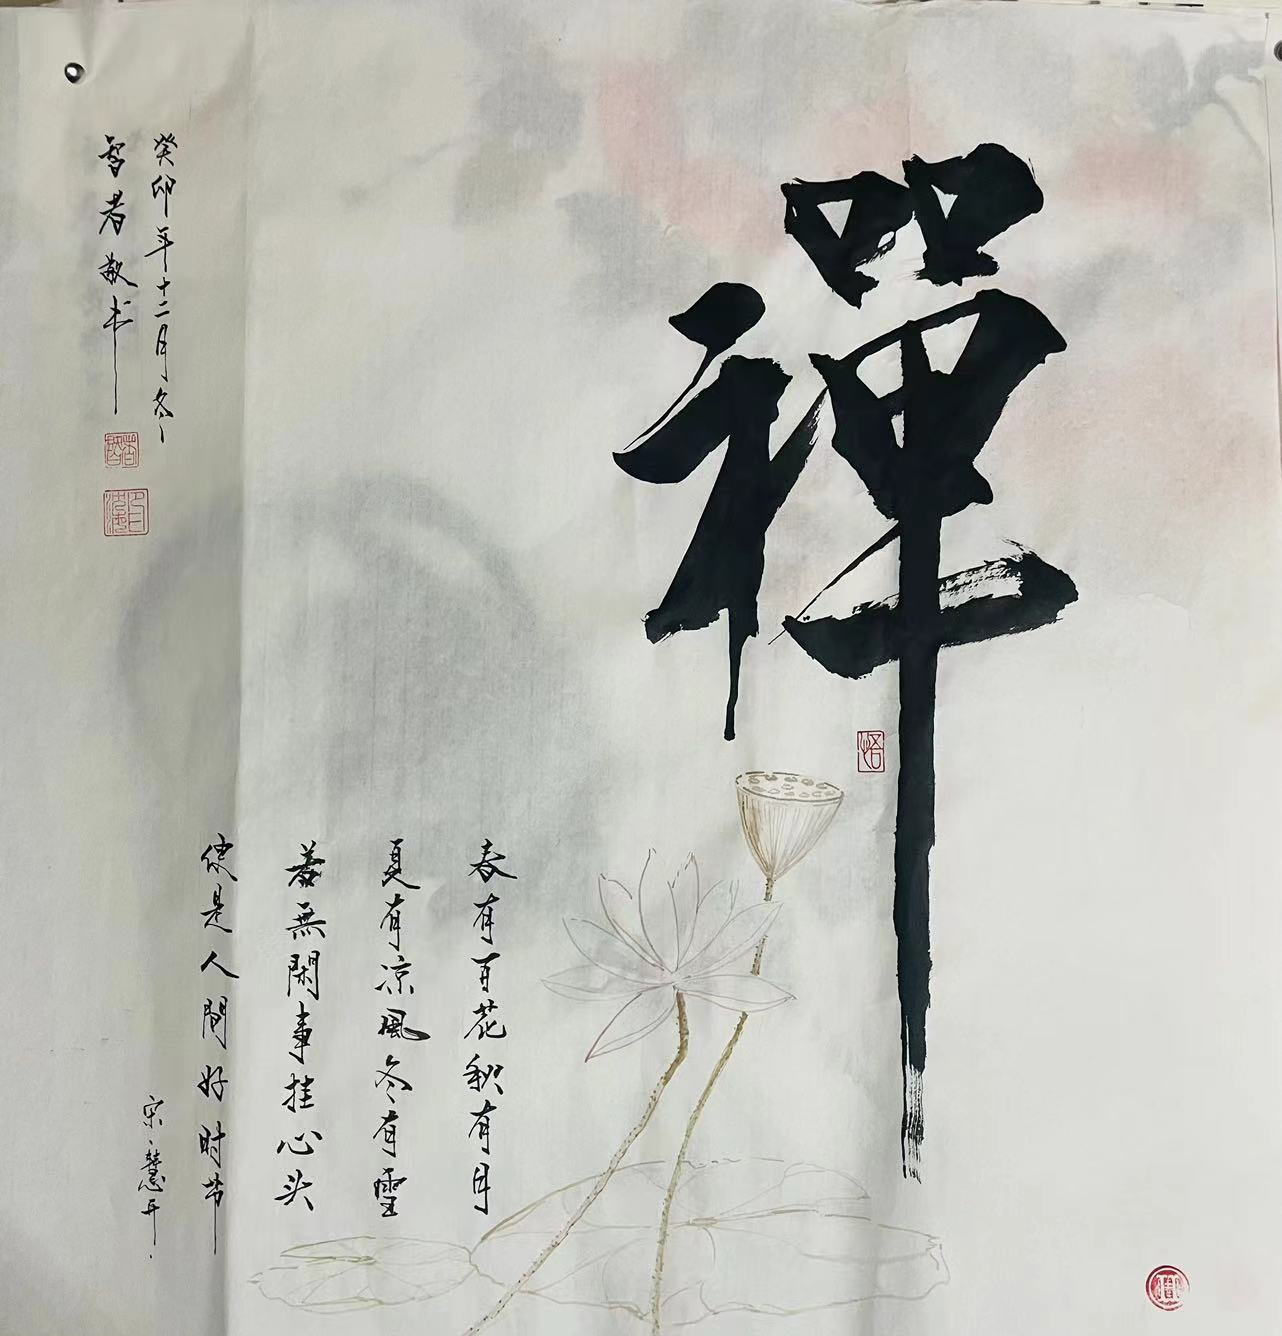 禪
春有百花秋有月
夏有凉風冬有雪
若無閑事挂心头
便是人間好时节
宋·慧开
癸卯年十二月冬
智者敬书
悟